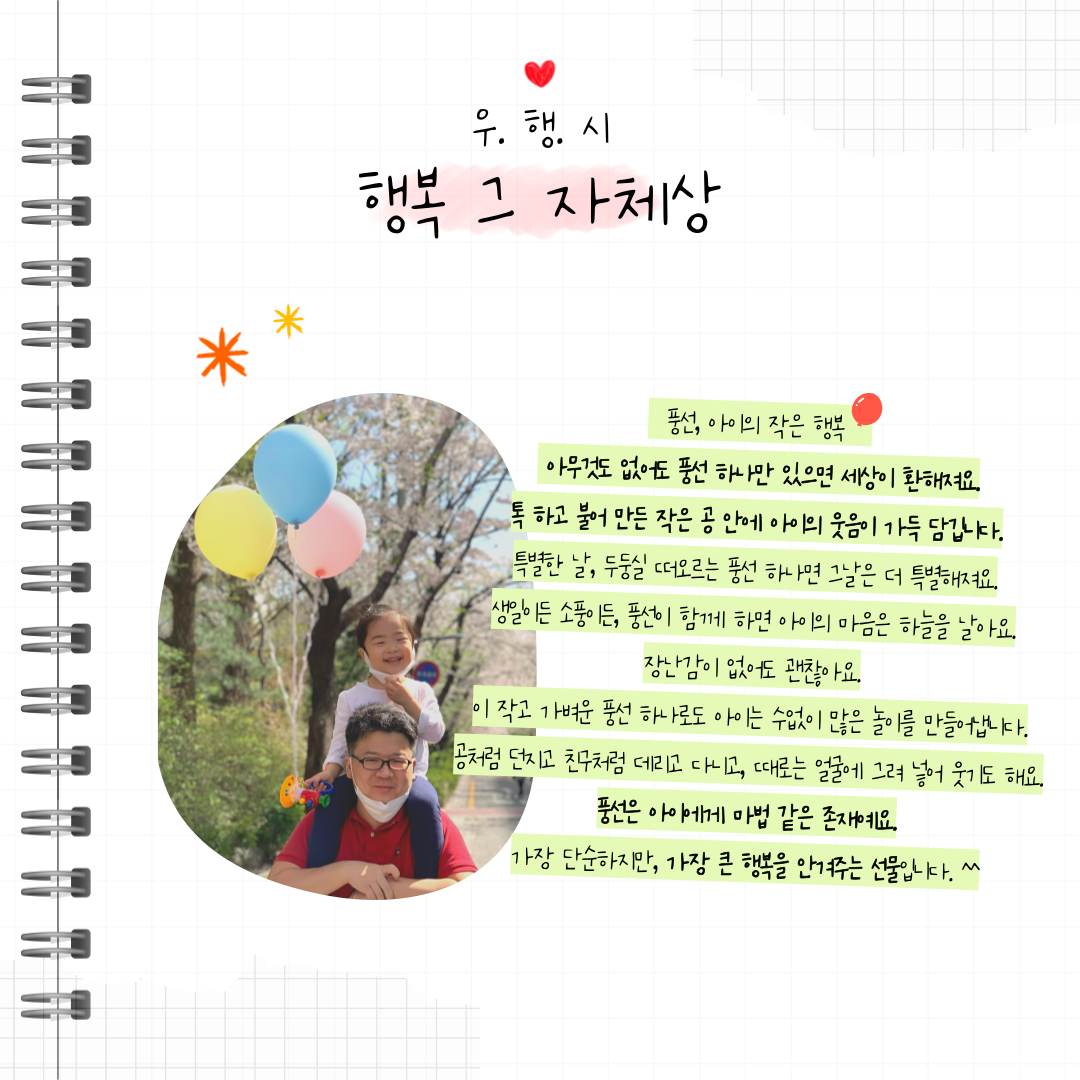 우. 행. 시
행복 그 자체상
풍선, 아이의 작은 행복
아무것도 없어도 풍선 하나만 있으면 세상이 환해져요.
톡 하고 불어 만든 작은 공 안에 아이의 웃음이 가득 담깁니다.
특별한 날, 두둥실 떠오르는 풍선 하나면 그날은 더 특별해져요.
생일이든 소풍이든, 풍선이 함께 하면 아이의 마음은 하늘을 날아요.
장난감이 없어도 괜찮아요.
이 작고 가벼운 풍선 하나로도 아이는 수없이 많은 놀이를 만들어냅니다.
공처럼 던지고 친구처럼 데리고 다니고, 때로는 얼굴에 그려 넣어 웃기도 해요.
풍선은 아이에게 마법 같은 존재예요.
가장 단순하지만, 가장 큰 행복을 안겨주는 선물입니다. ^^